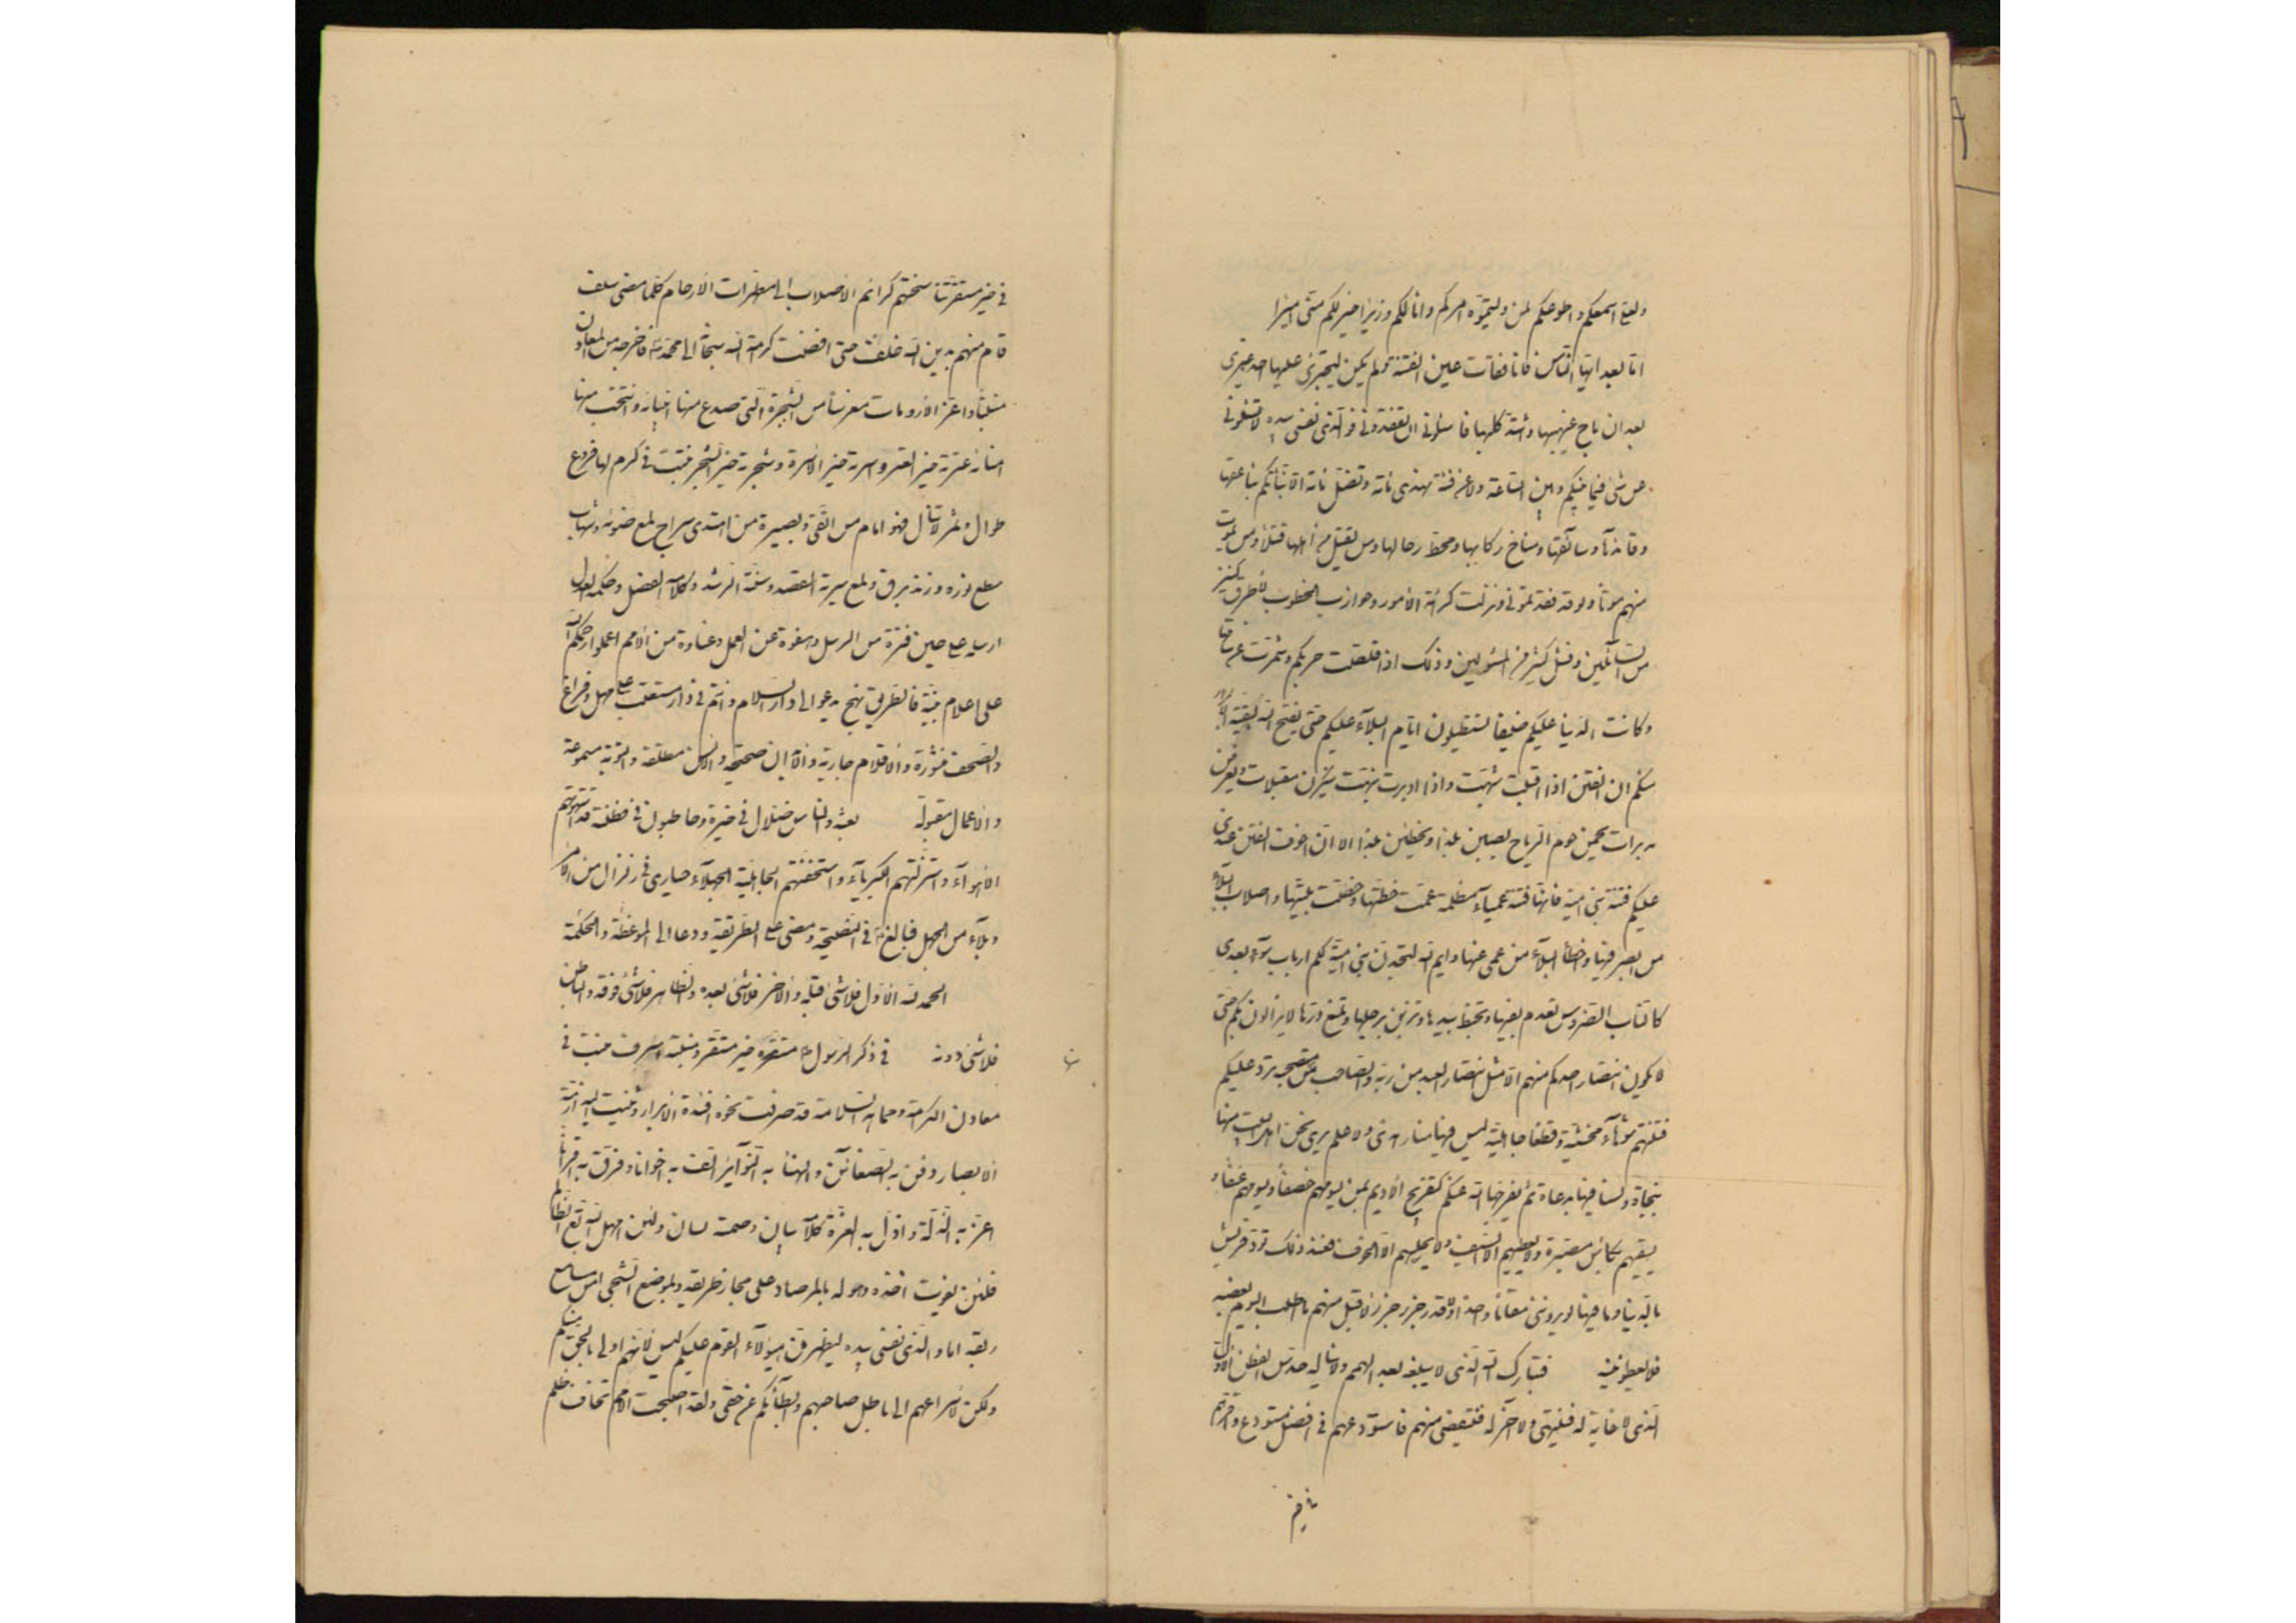 ولعلی اسمعکم واطوعکم لمن ولیتموه امرکم وانا لکم وزیرا خیر لکم منی امیرا
اما بعد ایها الناس فانا فقات عین الفتنة ولم یکن لیجترئ علیها احد غیری
بعد ان ماج غیهبها واشتد کلبها فاسئلونی قبل ان تفقدونی فوالذی نفسی بیده لا تسئلونی
عن شئ فیما بینکم وبین الساعة ولا عن فئة تهدی مائة وتضل مائة الا نباتکم بناعقها
وقائدها وسائقها ومناخ رکابها ومحط رحالها ومن یقتل من اهلها قتلا ومن یموت
منهم موتا ولو قد فقدتمونی ونزلت کرائه الامور وحوازب الخطوب لاطرق کثیر
من السائلین وفشل کثیر من المسئولین وذلک اذا قلصت حربکم وشمرت عن ساق
وکانت الدنیا علیکم ضیقا تستطیلون ایام البلاء علیکم حتی یفتح الله لبقیة الابرار
منکم ان الفتن اذا اقبلت شبهت واذا ادبرت نبهت ینکرن مقبلات ویعرفن
مدبرات یحمن حوم الریاح یصبن بلدا ویخطئن بلدا الا ان اخوف الفتن عندی
علیکم فتنة بنی امیة فانها فتنة عمیاء مظلمة عمت خطتها وخصت بلیتها واصاب البلاء
من ابصر فیها واخطأ البلاء من عمی عنها وایم الله لتجدن بنی امیة لکم ارباب سوء بعدی
کالناب الضروس تعذم بفیها وتخبط بیدها وتزبن برجلها وتمنع درها لا یزالون بکم حتی
لا یکون انتصار احدکم منهم الا مثل انتصار العبد من ربه والصاحب من مستصحبه ترد علیکم
فتنتهم شوهاء مخشیة وقطعا جاهلیة لیس فیها منار هدی ولا علم یری نحن اهل البیت منها
بنجاة ولسنا فیها بدعاة ثم یفرجها الله عنکم کتفریج الادیم بمن یسومهم خسفا ویسوقهم عنفا و
یسقیهم بکاس مصبرة ولا یعطیهم الا السیف ولا یحلسهم الا الخوف فعند ذلک تود قریش
بالدنیا وما فیها لو یروننی مقاما واحدا ولو قدر جزر جزور لاقبل منهم ما اطلب الیوم بعضه
فلا یعطوننیه فتبارک الله الذی لا یبلغه بعد الهمم ولا یناله حدس الفطن الاول
الذی لا غایة له فینتهی ولا آخر له فینقضی منهم فاستودعهم فی افضل مستودع واقرهم
فی خیر
فی خیر مستقر تناسختهم کرائم الاصلاب الی مطهرات الارحام کلما مضی سلف
قام منهم بدین الله خلف حتی افضت کرامة الله سبحانه الی محمد ص فاخرجه من افضل المعادن
منبتا واعز الارومات مغرسا من الشجرة التی صدع منها انبیاءه وانتخب منها
امناءه عترته خیر العتر واسرته خیر الاسر وشجرته خیر الشجر نبتت فی کرم لها فروع
طوال وثمر لا تنال فهو امام من اتقی وبصیرة من اهتدی سراج لمع ضوئه وشهاب
سطع نوره وزند برق لمعه سیرته القصد وسنته الرشد وکلامه الفصل وحکمه العدل
ارسله علی حین فترة من الرسل وهفوة عن العمل وغباوة من الامم اعملوا رحمکم الله
علی اعلام بینة فالطریق نهج یدعو الی دار السلام وانتم فی دار مستعتب علی مهل وفراغ
والصحف منشورة والاقلام جاریة والابدان صحیحة والالسن مطلقة والتوبة مسموعة
والاعمال مقبولة بعثه والناس ضلال فی حیرة وحاطبون فی فتنة قد استهوتهم
الاهواء واستزلتهم الکبریاء واستخفتهم الجاهلیة الجهلاء حیاری فی زلزال من الامر
وبلاء من الجهل فبالغ ص فی النصیحة ومضی علی الطریقة ودعا الی الموعظة والحکمة
الحمد لله الاول فلا شئ قبله والاخر فلا شئ بعده والظاهر فلا شئ فوقه والباطن
فلا شئ دونه فی ذکر الرسول ص مستقره خیر مستقر ومنبته اشرف منبت فی
معادن الکرامة ومماهد السلامة قد صرفت نحوه افئدة الابرار وثنیت الیه ازمة
الابصار دفن به الضغائن واطفأ به النوائر الف به اخوانا وفرق به اقرانا
اعز به الذلة واذل به العزة کلامه بیان وصمته لسان ولئن امهل الله الظالم
فلن یفوت اخذه وهو له بالمرصاد علی مجاز طریقه وبموضع الشجی من مساغ
ریقه اما والذی نفسی بیده لیظهرن هؤلاء القوم علیکم لیس لانهم اولی بالحق منکم
ولکن لاسراعهم الی باطل صاحبهم وابطائکم عن حقی ولقد اصبحت الامم تخاف ظلم